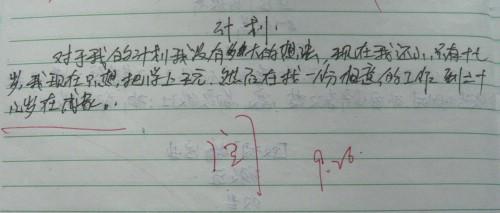 计划
对于我的计划我没有多大的想法，现在我还小，只有十七
岁，我现在只想把学上完，然后在找一份相应的工作，到二十
八岁在成家。
9.26